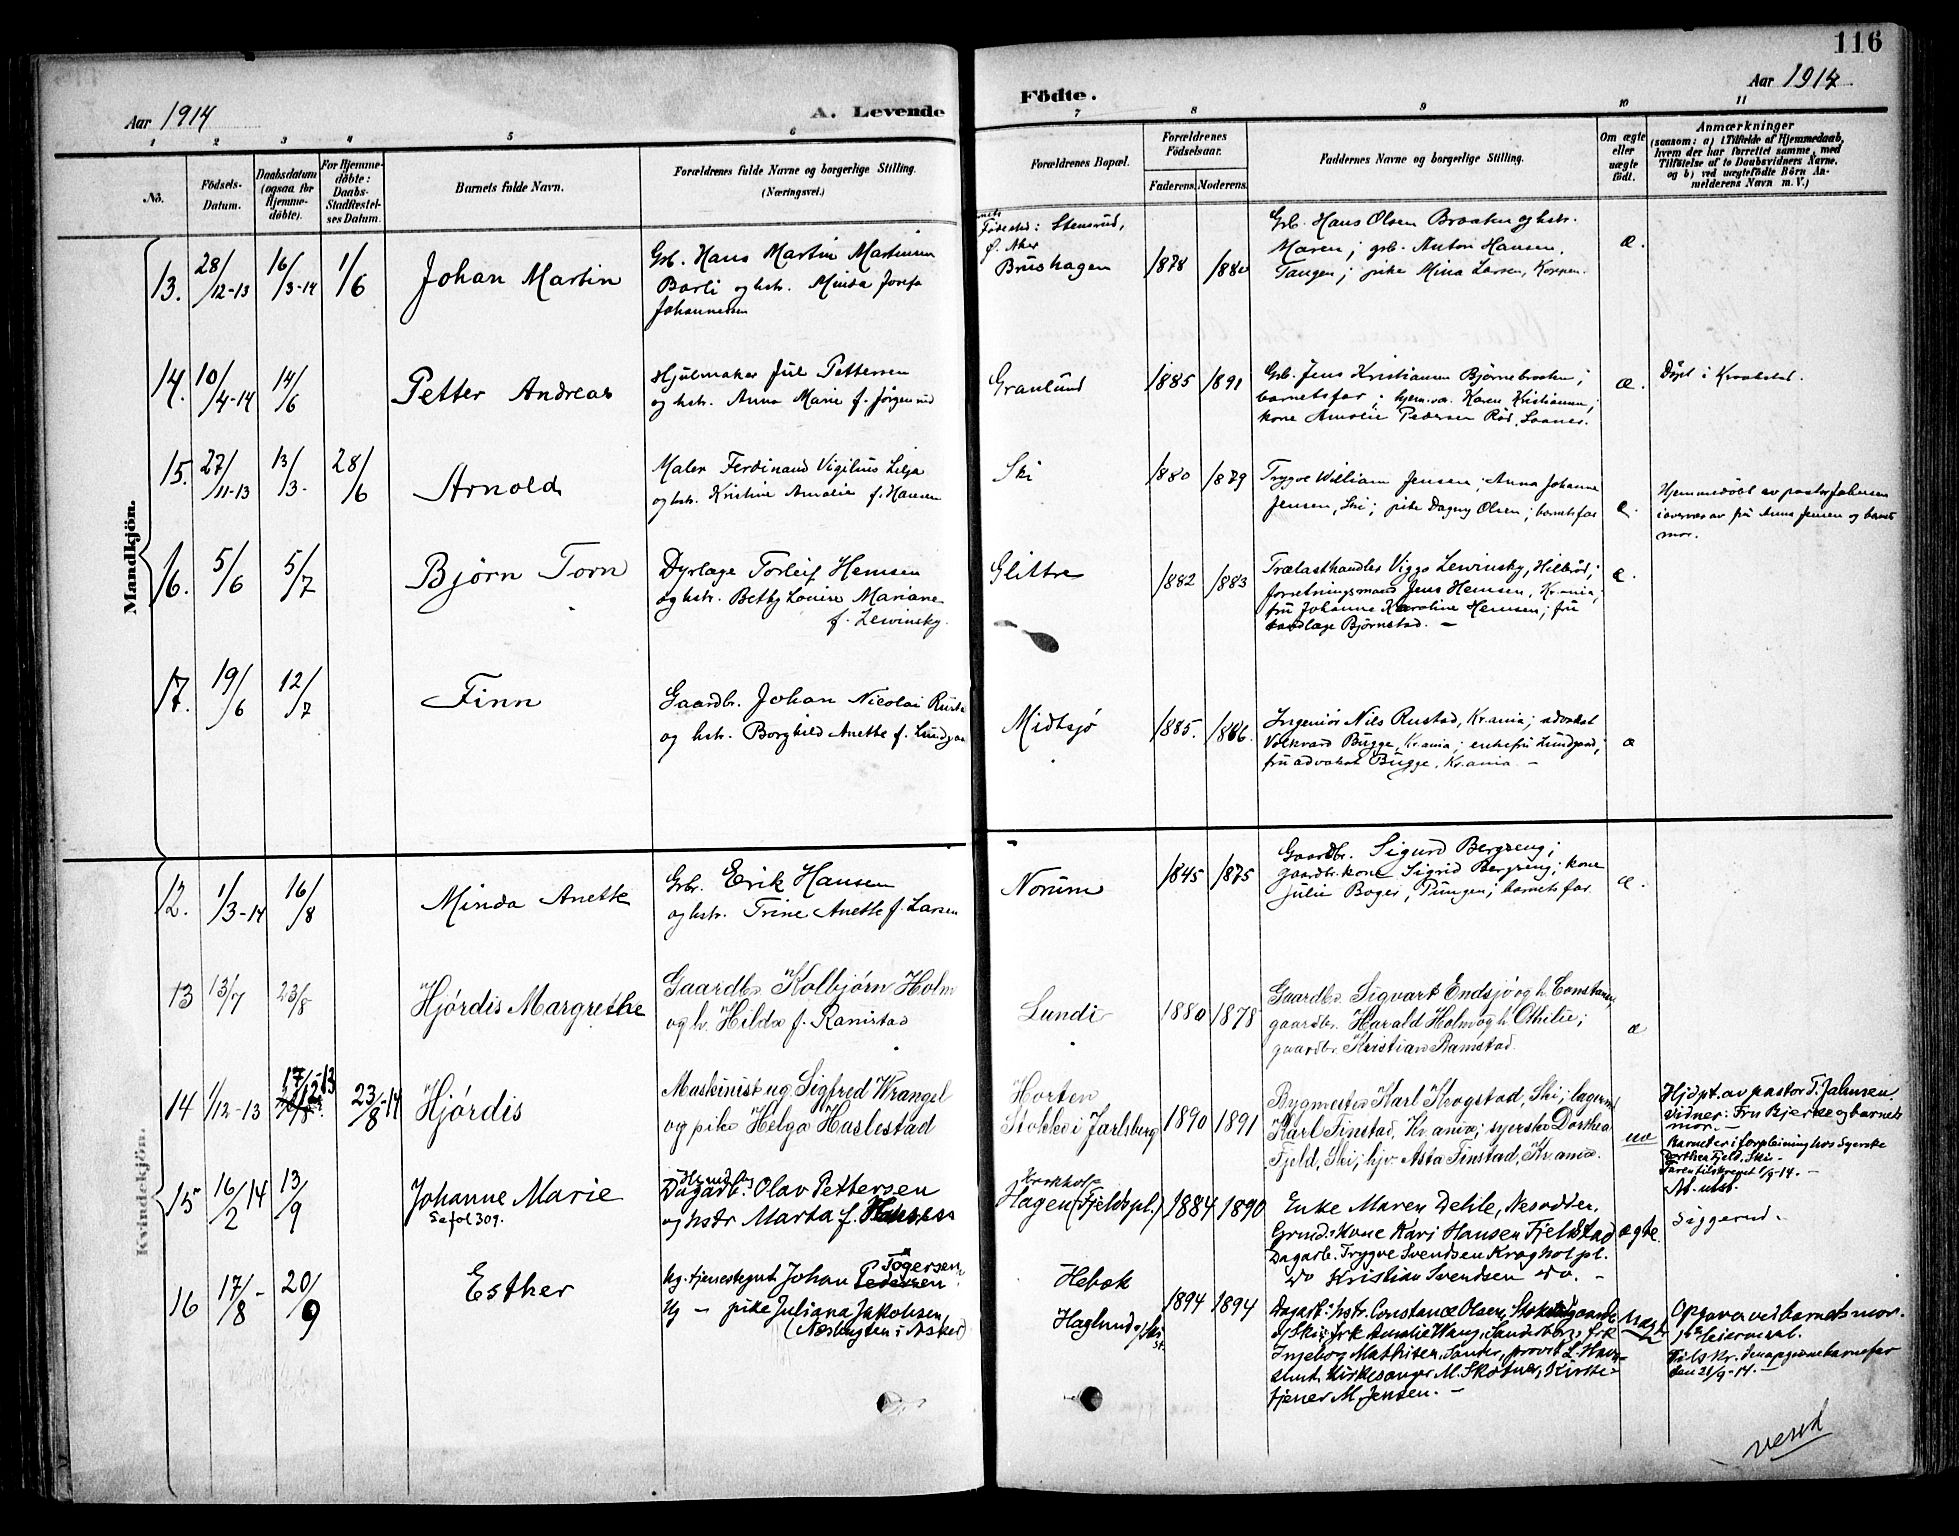 116
Aar 1914
A. Levende
Födte.
Aar 1914
1 2 3 4 5 6 7 8 9 10 11
No.
Födsels-
Datum.
Daabsdatum
(ogsaa for
Hjemme-
döbte).
For Hjemme-
döbte:
Daabs-
Stadfæstel-
ses Datum.
Barnets fulde Navn.
Forældrenes fulde Navne og borgerlige Stilling.
(Næringsvei.)
Forældrenes Bopæl.
Forældrenes
Födselsaar.
Faderens. Moderens.
Faddernes Navne og borgerlige Stilling.
Om ægte
eller
uægte
födt.
Anmærkninger
(saasom: a) i Tilfælde af Hjemmedaab,
hvem der har forrettet samme, med
Tilföielse af to Daabsvidners Navne,
og b) ved uægtefödte Börn An-
melderens Navn m. V.)
Mandkjön.
13. 28/12-13 16/3-14 1/6
Johan Martin
Grb. Hans Martin Martinsen
Barli og hstr. Minda Josefa
Johannessen
Födested: Stensrud,
Ø. Aker
Brushagen
1878 1880
Grb. Hans Olsen Braaten og hstr.
Maren; grb. Anton Hansen,
Tangen; pike Mina Larsen, Korpen.
æ.
14. 10/4-14 14/6
Petter Andreas
Hjulmaker Jul Pettersen
og hstr. Anna Marie f. Jørgensrud
Granlund
1885 1891
Grb. Jens Kristiansen Bjørnebraaten;
barnets far; hjem.va. Karen Kristiansen;
kone Amalie Pedersen Rød, Saanes.
æ.
Döpt i Kraakstad.
15. 27/11-13 13/3- 28/6
Arnold
Maler Ferdinand Vigilius Lilja
og hstr. Kristine Amalie f. Hansen
Ski
1880 1879
Trygve William Jensen; Anna Johanne
Jensen, Ski; pike Dagny Olsen; barnets far
æ.
Hjemmedöbt av pastor Jahnsen
i overvær av frk Anna Jensen og barnets
mor.
16. 5/6 5/7
Bjørn Torn
Dyrlæge Torleif Hemsen
og hstr. Betty Louise Mariane
f. Lewinsky.
Glittre
1882 1883
Trælasthandler Viggo Lewinsky, Hilbrød;
forretningsmand Jens Hemsen, Kr.ania;
fru Johanne Karoline Hemsen; fru
tandlæge Bjørnstad. —
æ.
17. 19/6 12/7
Finn
Gaardbr. Johan Nicolai Rustad
og hstr. Borghild Anette f. Lundgaard
Midtsjø
1885. 1886.
Ingeniør Nils Rustad, Kr.ania; advokat
Volkvard Bugge, Kr.ania; enkefru Lundgaard;
fru advokat Bugge, Kr.ania. —
æ
Kvindekjön.
12. 1/3-14 16/8
Minda Anette
Grbr. Erik Hansen
og hstr. Trine Anette f. Larsen
Norum
1845 1875
Gaardbr. Sigurd Bergseng;
gaardbr.kone Sigrid Bergseng; kone
Julie Boger, Pungen; barnets far
æ.
13 13/7 23/8
Hjördis Margrethe
Gaardbr Kolbjørn Holm
og h. Hilda f. Ramstad
Lundi
1880 1878
Gaardbr Sigvart Endsjø og h. Constanse,
gaardbr. Harald Holm og h. Othilie;
gaardbr. Kristian Ramstad.
æ
14 1/12-13 17/12-13 23/8-14
Hjördis
Maskinist ug Sigfred Wrangel
og pike Helga Haslestad
Horten
Stokke i Jarlsberg
1890 1891
Bygmester Karl Skogstad, Ski; lagerm.
Karl Finstad, Kr.ania; syerske Dorthea
Fjeld, Ski; hjv. Asta Finstad, Kr.ania.
uæ
Hjdpt. av pastor T. Jahnsen.
Vidner: Fru Bjerke og barnets
mor. —
Barnet er i forpleining hos Syerske
Dorthea Fjeld. Ski —
Faren tilskrevet 1/9-14. —
Ab. utst.
15 16/2 14 13/9
Johanne Marie
Se fol 309.
Dagarb. Olav Pettersen
og hstr Marta f. Hansen
Hagen (Fjeldspl.)
1884 1890
Enke Maren Dehle, Nesodden,
Grundskone Kari Hansen Fjelstad
Dagarb. Trygve Svendsen Kragholpl.
do Kristian Svendsen do. —
ægte.
Siggerud.
16 17/8- 20/9
Esther
Ug. tjenestegut Johan Pedersen
Tögersen
Ug — pike Juliana Jakobsen
(Næsbygten i Asker)
Hebæk
Haglund p/Ski st.
1894 1894
Dagarb. hstr. Constance Olsen,
p/Ski; frk Amalie Wang, Sanderborg, frk
Ingebog Mathisen, Sander, provst L. Hav-
stad, kirkesanger M. Skotner, Kirke-
tjener M. Jensen. —
Uægt
Opgava ved barnets mor.
Tilskr. den opgivne barnefar
den 21/9-14. —